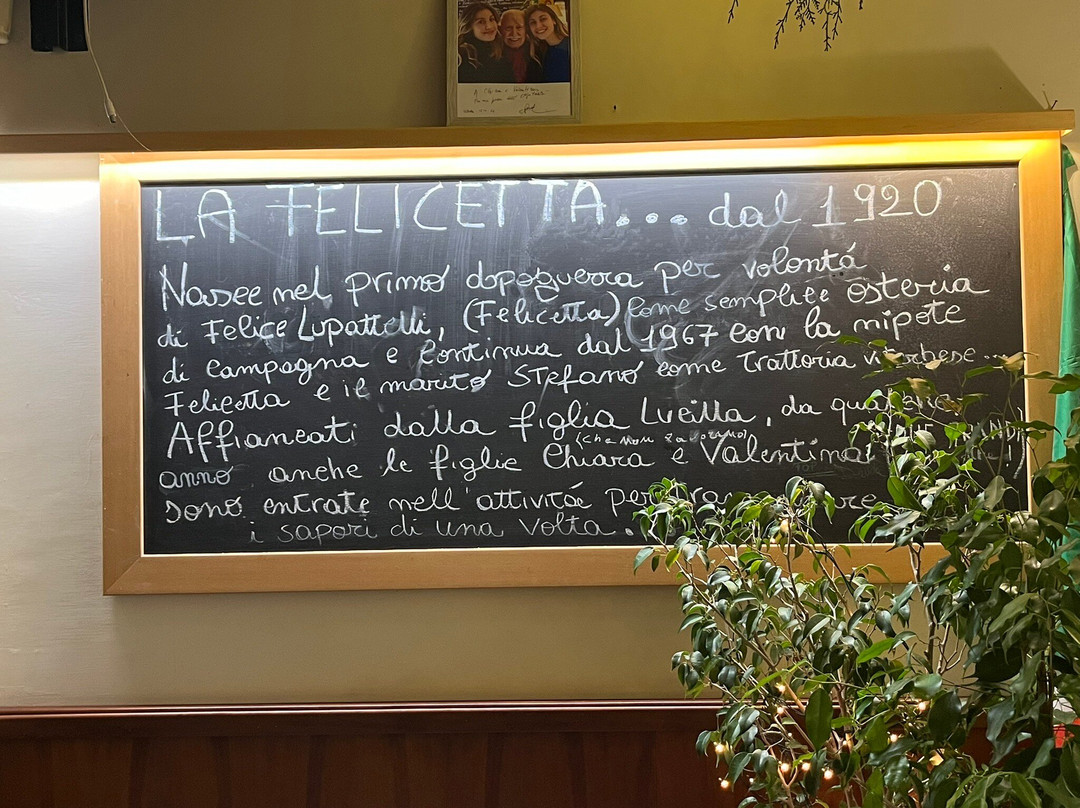 LA FELICETTA... dal 1920
Nasce nel primo dopoguerra per volontá
di Felice Lupattelli, (Felicetta) come semplice osteria
di campagna e continua dal 1967 con la nipote
Felicetta e il marito Stefano come trattoria
Affiancati dalla figlia Lucilla, da
(che non lavorano)
anno anche le figlie Chiara e Valentina
sono entrate nell'attivitá per
i sapori di una volta.